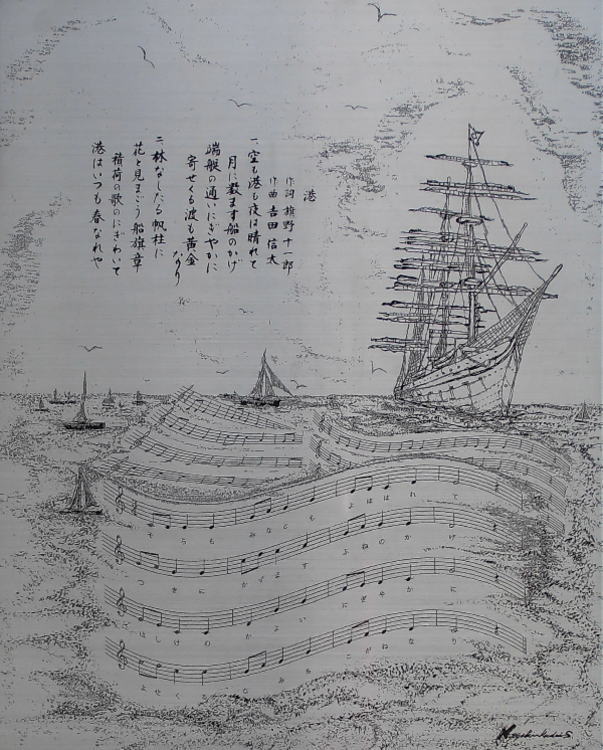 港
作詞 旗野十一郎
作曲 吉田信太
一、空も港も夜は晴れて
月に数ます船のかげ
端艇の通いにぎやかに
寄せくる波も黄金なり
二、林なしたる帆柱に
花と見まごう船旗章
積荷の歌のにぎわいて
港はいつも春なれや
そらも みなとも よははれて
つきに かずます ふねのかげ
はしけの かよい にぎやかに
よせくる なみも こがねなり